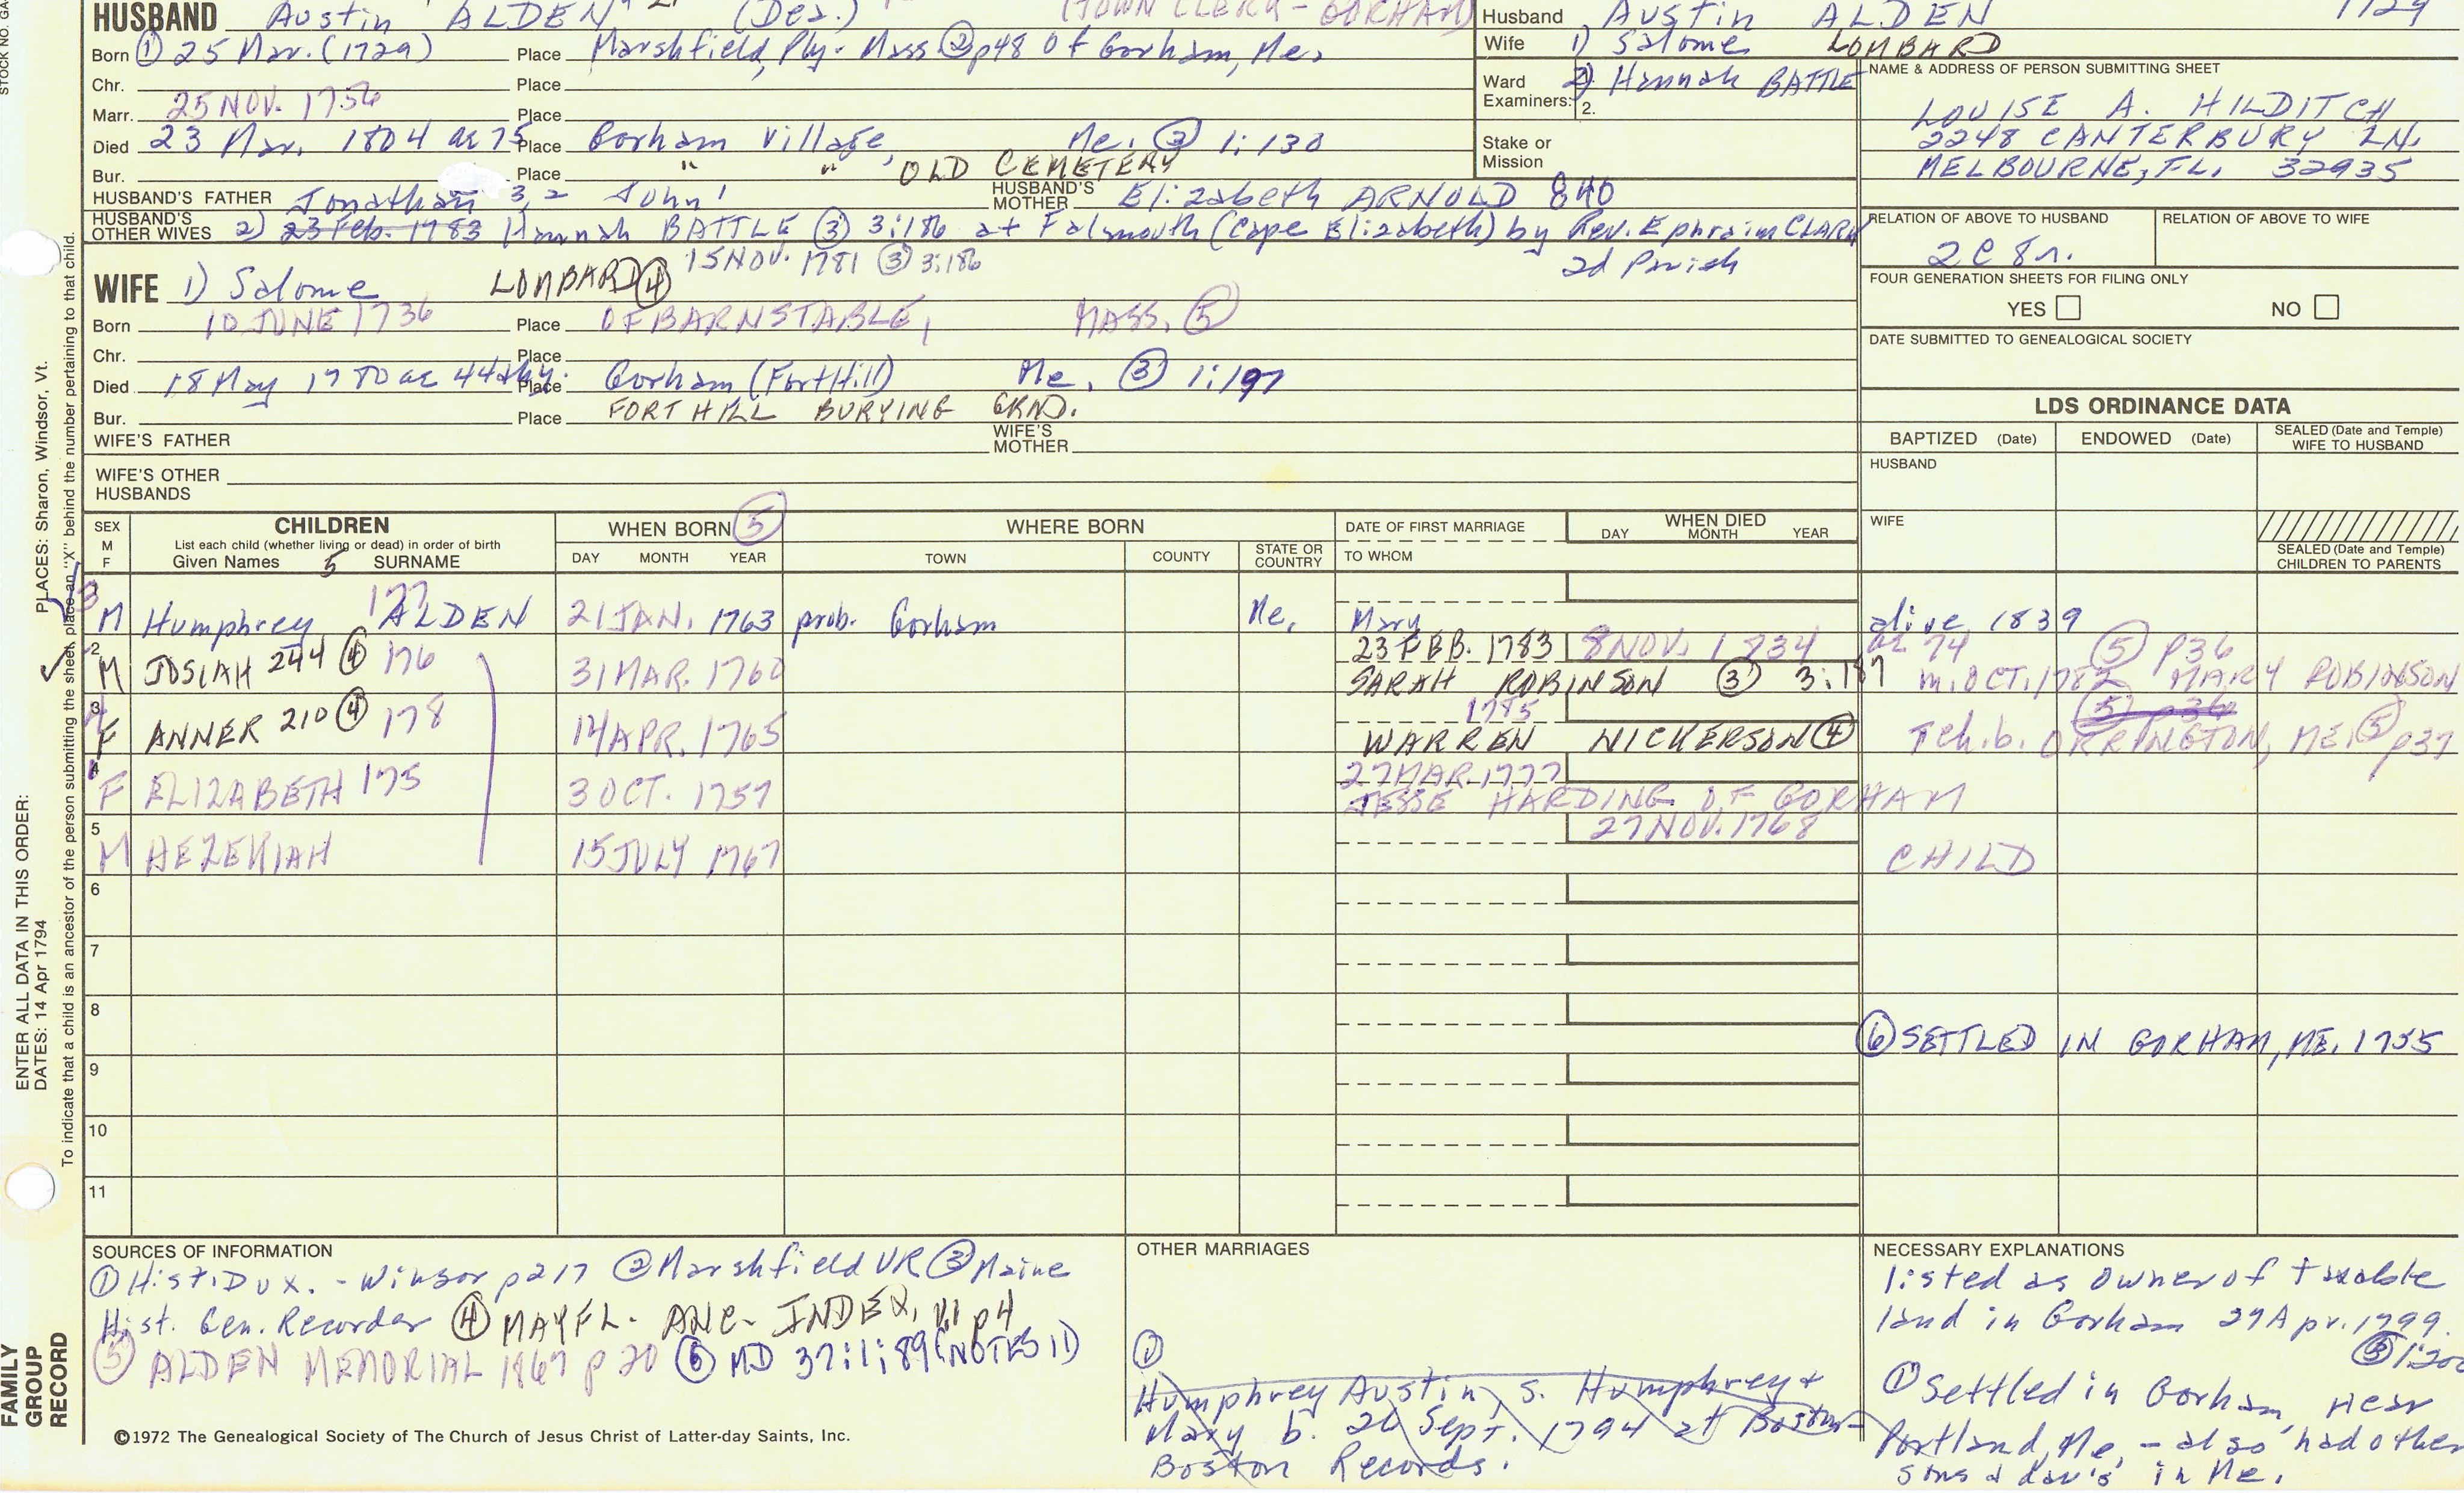 HUSBAND Austin ALDEN (Des.) (TOWN CLERK - GORHAM)
Born ① 25 Mar. (1729) Place Marshfield, Ply. Mass ② p48 of Gorham, Me.
Chr. Place
Marr. 25 NOV. 1756 Place
Died 23 Mar. 1804 ae 75 Place Gorham Village, Me. ③ 1:130
Bur. Place " " OLD CEMETERY
HUSBAND'S FATHER Jonathan 3, 2 John 1 HUSBAND'S MOTHER Elizabeth ARNOLD 840
HUSBAND'S OTHER WIVES 2) 23 Feb. 1783 Hannah BATTLE ③ 3:186 at Falmouth (Cape Elizabeth) by Rev. Ephraim CLARK
15 NOV. 1781 ③ 3:186 2d Parish
WIFE 1) Salome LOMBARD ④
Born 10 JUNE 1736 Place OF BARNSTABLE, MASS. ⑤
Chr. Place
Died 18 May 1780 ae 44th y. Place Gorham (Fort Hill) Me. ③ 1:197
Bur. Place FORT HILL BURYING GRND.
WIFE'S FATHER WIFE'S MOTHER
WIFE'S OTHER HUSBANDS
Husband Austin ALDEN 1729
Wife 1) Salome LOMBARD
Ward Examiners: 2) Hannah BATTLE
2.
Stake or Mission
NAME & ADDRESS OF PERSON SUBMITTING SHEET
LOUISE A. HILDITCH
2248 CANTERBURY LN.
MELBOURNE, FL. 32935
RELATION OF ABOVE TO HUSBAND RELATION OF ABOVE TO WIFE
2C 8r.
FOUR GENERATION SHEETS FOR FILING ONLY
YES NO
DATE SUBMITTED TO GENEALOGICAL SOCIETY
LDS ORDINANCE DATA
BAPTIZED (Date) ENDOWED (Date) SEALED (Date and Temple) WIFE TO HUSBAND
HUSBAND
WIFE
SEALED (Date and Temple) CHILDREN TO PARENTS
SEX M F CHILDREN WHEN BORN ⑤ WHERE BORN DATE OF FIRST MARRIAGE WHEN DIED
List each child (whether living or dead) in order of birth
Given Names 5 SURNAME DAY MONTH YEAR TOWN COUNTY STATE OR COUNTRY TO WHOM DAY MONTH YEAR
3 M Humphrey 177 ALDEN 21 JAN. 1763 prob. Gorham Me. Mary alive 1839
2 M JOSIAH 244 ④ 176 31 MAR. 1760 23 FEB. 1783 8 NOV. 1834 ae 74 ⑤ P36
SARAH ROBINSON ③ 3:187 m. OCT. 1782 MARY ROBINSON
3 F ANNER 210 ④ 178 14 APR. 1765 1785 ⑤ p36
WARREN NICKERSON ④ 7ch. b. ORRINGTON, ME. ⑤ p37
4 F ELIZABETH 175 3 OCT. 1757 27 MAR. 1777
JESSE HARDING OF GORHAM
5 M HEZEKIAH 15 JULY 1767 27 NOV. 1768 CHILD
6
7
8
⑥ SETTLED IN GORHAM, ME. 1755
9
10
11
SOURCES OF INFORMATION
① Hist. Dux. - Winsor p217 ② Marshfield VR ③ Maine
Hist. Gen. Recorder ④ MAYFL. ANC. INDEX, v1 p4
⑤ ALDEN MEMORIAL 1867 p 20 ⑥ MD 37:1:89 (NOTES 11)
©1972 The Genealogical Society of The Church of Jesus Christ of Latter-day Saints, Inc.
OTHER MARRIAGES
①
Humphrey Austin, s. Humphrey +
Mary b. 26 Sept. 1794 at Boston -
Boston Records.
NECESSARY EXPLANATIONS
listed as owner of taxable
land in Gorham 27 Apr. 1799.
③ 1:200
① Settled in Gorham, near
Portland, Me, - also had other
sons & dau's in Me.
STOCK NO. GA
PLACES: Sharon, Windsor, Vt.
ENTER ALL DATA IN THIS ORDER:
DATES: 14 Apr 1794
To indicate that a child is an ancestor of the person submitting the sheet, place an "X" behind the number pertaining to that child.
FAMILY
GROUP
RECORD